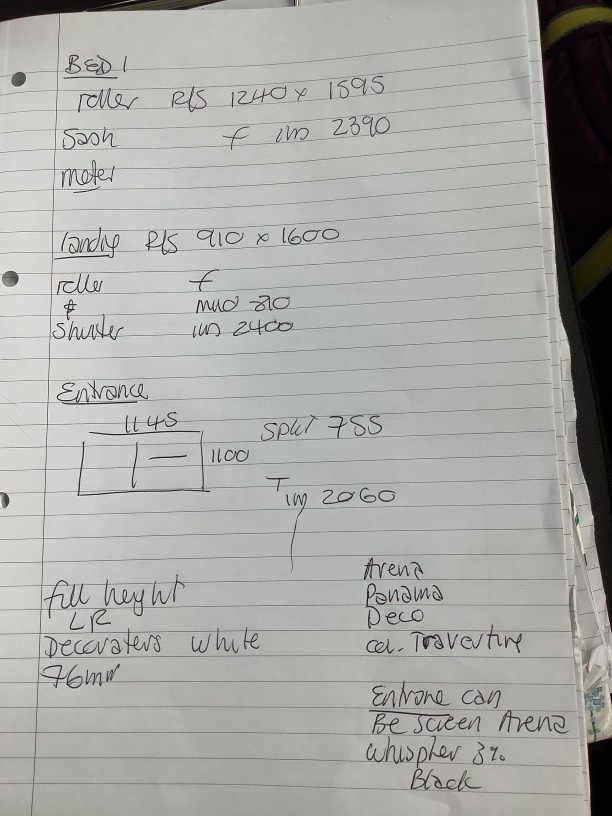 BED 1
roller R/S 1240 x 1595
Sash f im 2390
moter
Landig R/S 910 x 1600
roller f
& mud 810
Shutter im 2400
Entrance
1145
Split 755
1100
T
im 2060
full height
LR
Decoraters White
76mm
Arena
Panama
Deco
col. Travertine
Entrane can
Be Screen Arena
Whispher 3%
Black